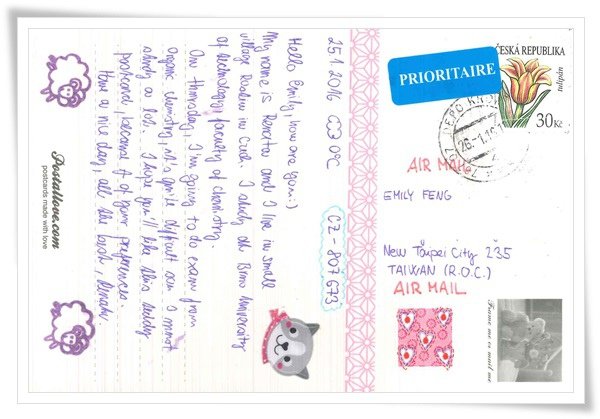 25.1.2016 0°C
CZ-807 673
Hello Emily, how are you? :)
My name is Renata and I live in small
village in Czech. I study at Brno University
of technology, faculty of chemistry.
On thursday, I'm going to do exam from
organic chemistry, it's quite difficult so I must
study a lot. I hope you'll like this
postcard, because of your preferences.
Have a nice day, all the best, Renata.
Postallove.com
postcards made with love
PRIORITAIRE
ČESKÁ REPUBLIKA
tulipán
30Kč
DEPO
26.-1.16
AIR MAIL
EMILY FENG
New Taipei City 235
TAIWAN (R.O.C.)
AIR MAIL